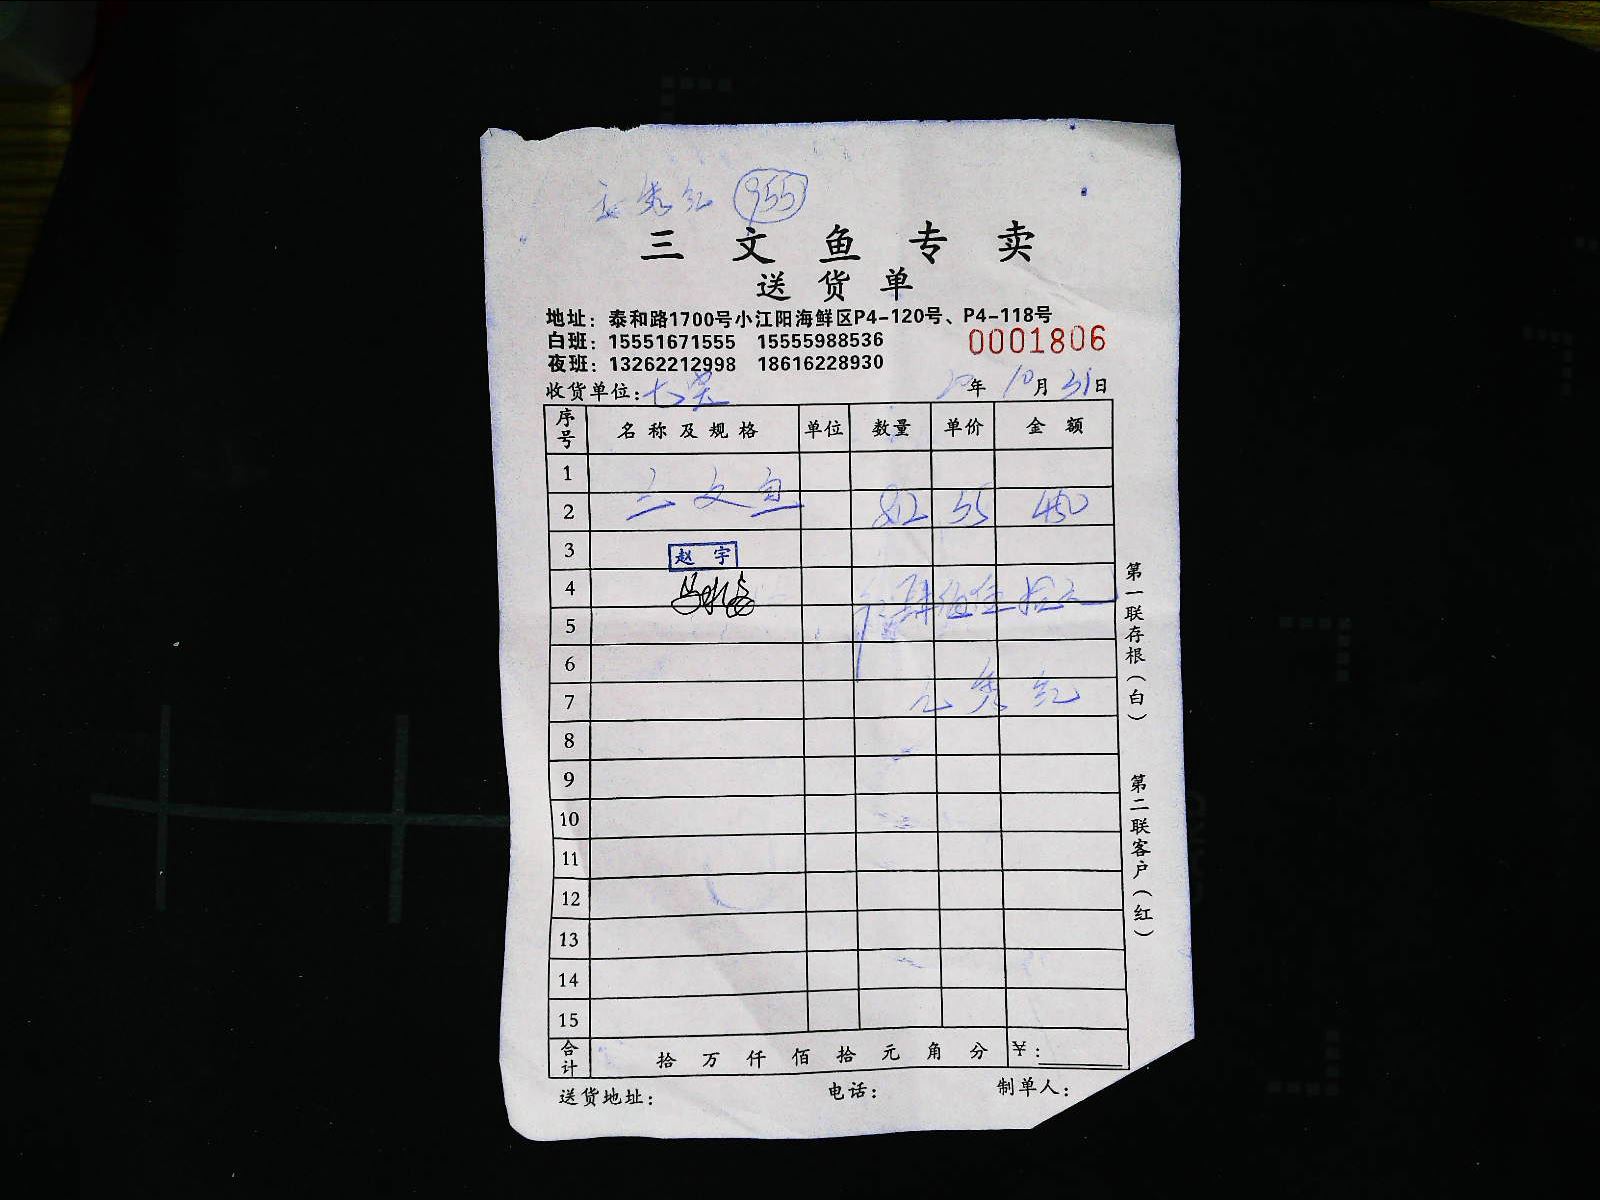 955
三文鱼专卖
送货单
地址：泰和路1700号小江阳海鲜区P4-120号、P4-118号
白班：15551671555 15555988536
0001806
夜班：13262212998 18616228930
收货单位： 20年10月31日
序号 名称及规格 单位 数量 单价 金额
1
2 三文鱼 812 55 450
3 赵宇
4
肆佰伍拾元
5
6
7 秀红
8
9
10
11
12
13
14
15
合计 拾万仟佰拾元角分 ￥：
送货地址： 电话： 制单人：
第一联存根（白）
第二联客户（红）